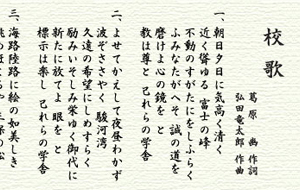 校歌
葛原 𦱳 作詞
弘田竜太郎 作曲
一、朝日夕日に気高く清く
近く聳ゆる 富士の峰
不動のすがたにをしふらく
ふみなたがへそ 誠の道を
磨けよ心の鏡を と
教は尊と 己れらの学舎
二、よせてかえして夜昼わかず
波ぞささやく 駿河湾
久遠の希望にしめすらく
励みいそしみ栄ゆく御代に
新たに放てよ 眼を と
標示は楽し 己れらの学舎
三、海路陸路に絵の如美しき